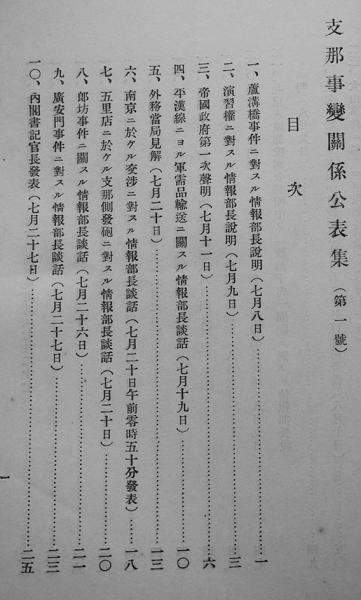 支那事變關係公表集（第一號）
目次
一、蘆溝橋事件ニ對スル情報部長說明（七月八日）……一
二、演習權ニ對スル情報部長說明（七月九日）……三
三、帝國政府第一次聲明（七月十一日）……六
四、平漢線ニヨル軍需品輸送ニ關スル情報部長談話（七月十九日）……一〇
五、外務當局見解（七月二十日）……一三
六、南京ニ於ケル交涉ニ對スル情報部長談話（七月二十日午前零時五十分發表）……一八
七、五里店ニ於ケル支那側發砲ニ對スル情報部長談話（七月二十日）……二〇
八、郎坊事件ニ關スル情報部長談話（七月二十六日）……二一
九、廣安門事件ニ對スル情報部長談話（七月二十七日）……二三
一〇、內閣書記官長發表（七月二十七日）……二五
一